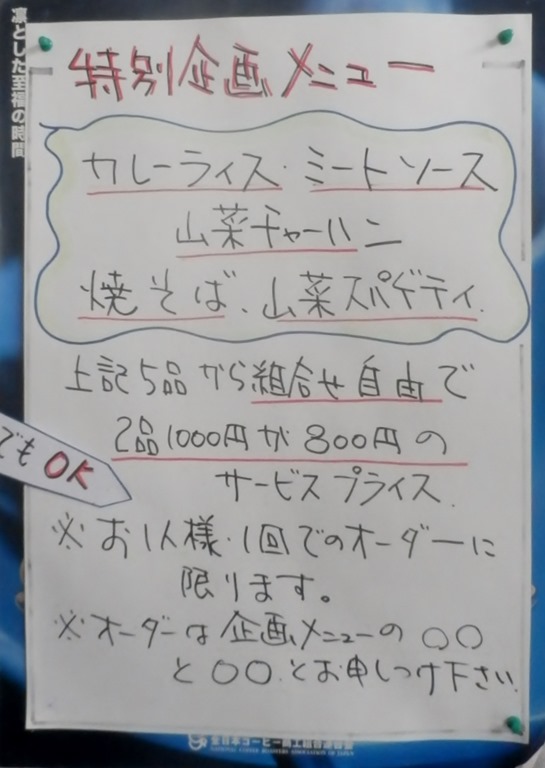 凛とした至福の時間
特別企画メニュー
カレーライス・ミートソース
山菜チャーハン
焼そば、山菜スパゲティ.
上記5品から組合せ自由で
2品1000円が800円の
サービスプライス.
でもOK
※お1人様・1回でのオーダーに
限ります。
※オーダーは企画メニューの○○
と○○.とお申しつけ下さい.
全日本コーヒー商工組合連合会